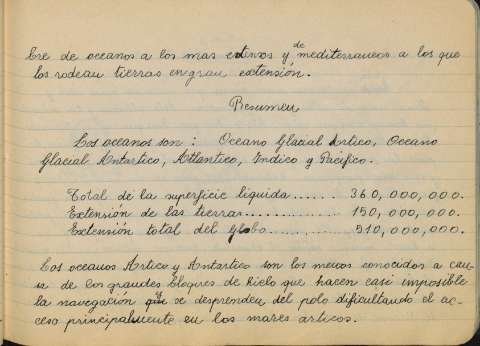 bre de oceanos a los mas extensos y de mediterraneos a los que
los rodean tierras en gran extensión.
Resumen
Los oceanos son: Oceano Glacial Artico, Oceano
Glacial Antartico, Atlantico, Indico y Pacifico.
Total de la superficie liquida...... 360,000,000.
Extensión de las tierras............. 150,000,000.
Extensión total del Globo........... 510,000,000.
Los oceanos Artico y Antartico son los menos conocidos a cau-
sa de los grandes bloques de hielo que hacen casi imposible
la navegacion y que se desprenden del polo dificultando el ac-
ceso principalmente en los mares articos.